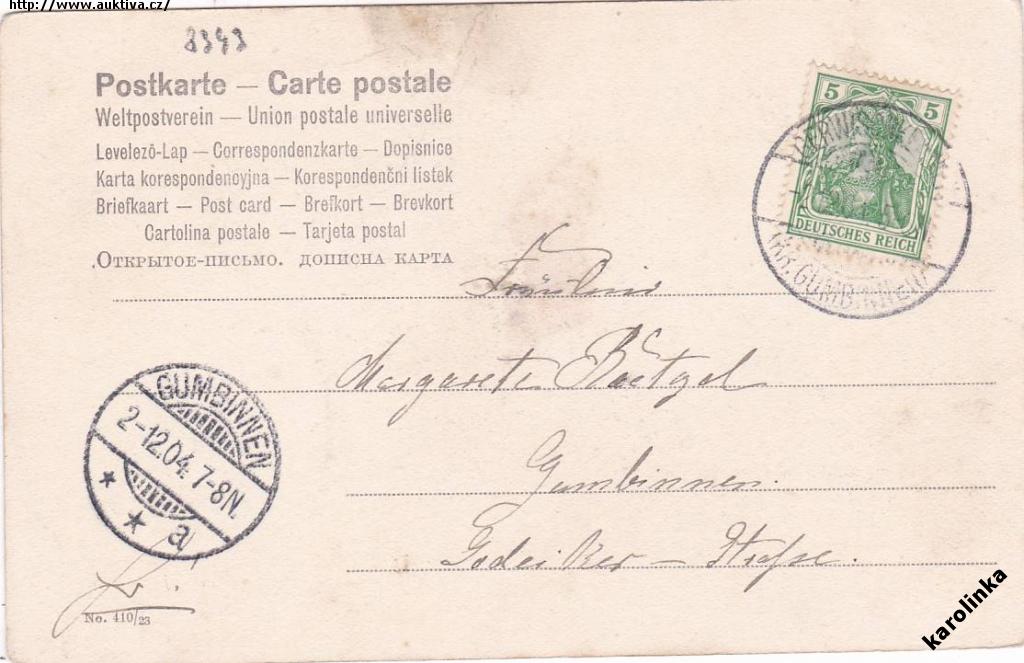 http://www.auktiva.cz/
Postkarte — Carte postale
Weltpostverein — Union postale universelle
Levelező-Lap — Correspondenzkarte — Dopisnice
Karta korespondencyjna — Korespondenčni listek
Briefkaart — Post card — Brefkort — Brevkort
Cartolina postale — Tarjeta postal
.Открытое-письмо. дописна карта
5 5
DEUTSCHES REICH
GUMBINNEN
Fräulein
Margarete
Gumbinnen.
GUMBINNEN
2-12.04. 7-8N.
* * a
No. 410/23
karolinka